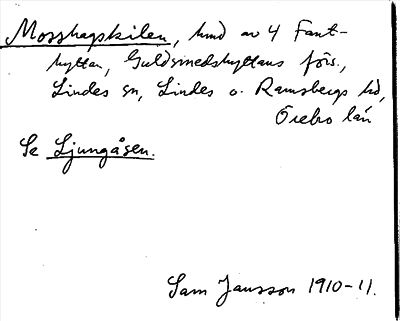 Mosshagskilen, kmd av 4 Fant-
hyttan, Guldsmedshyttans förs.,
Lindes sn, Lindes o. Ramsbergs hd,
Örebro län
Se Ljungåsen.
Sam Jansson 1910-11.